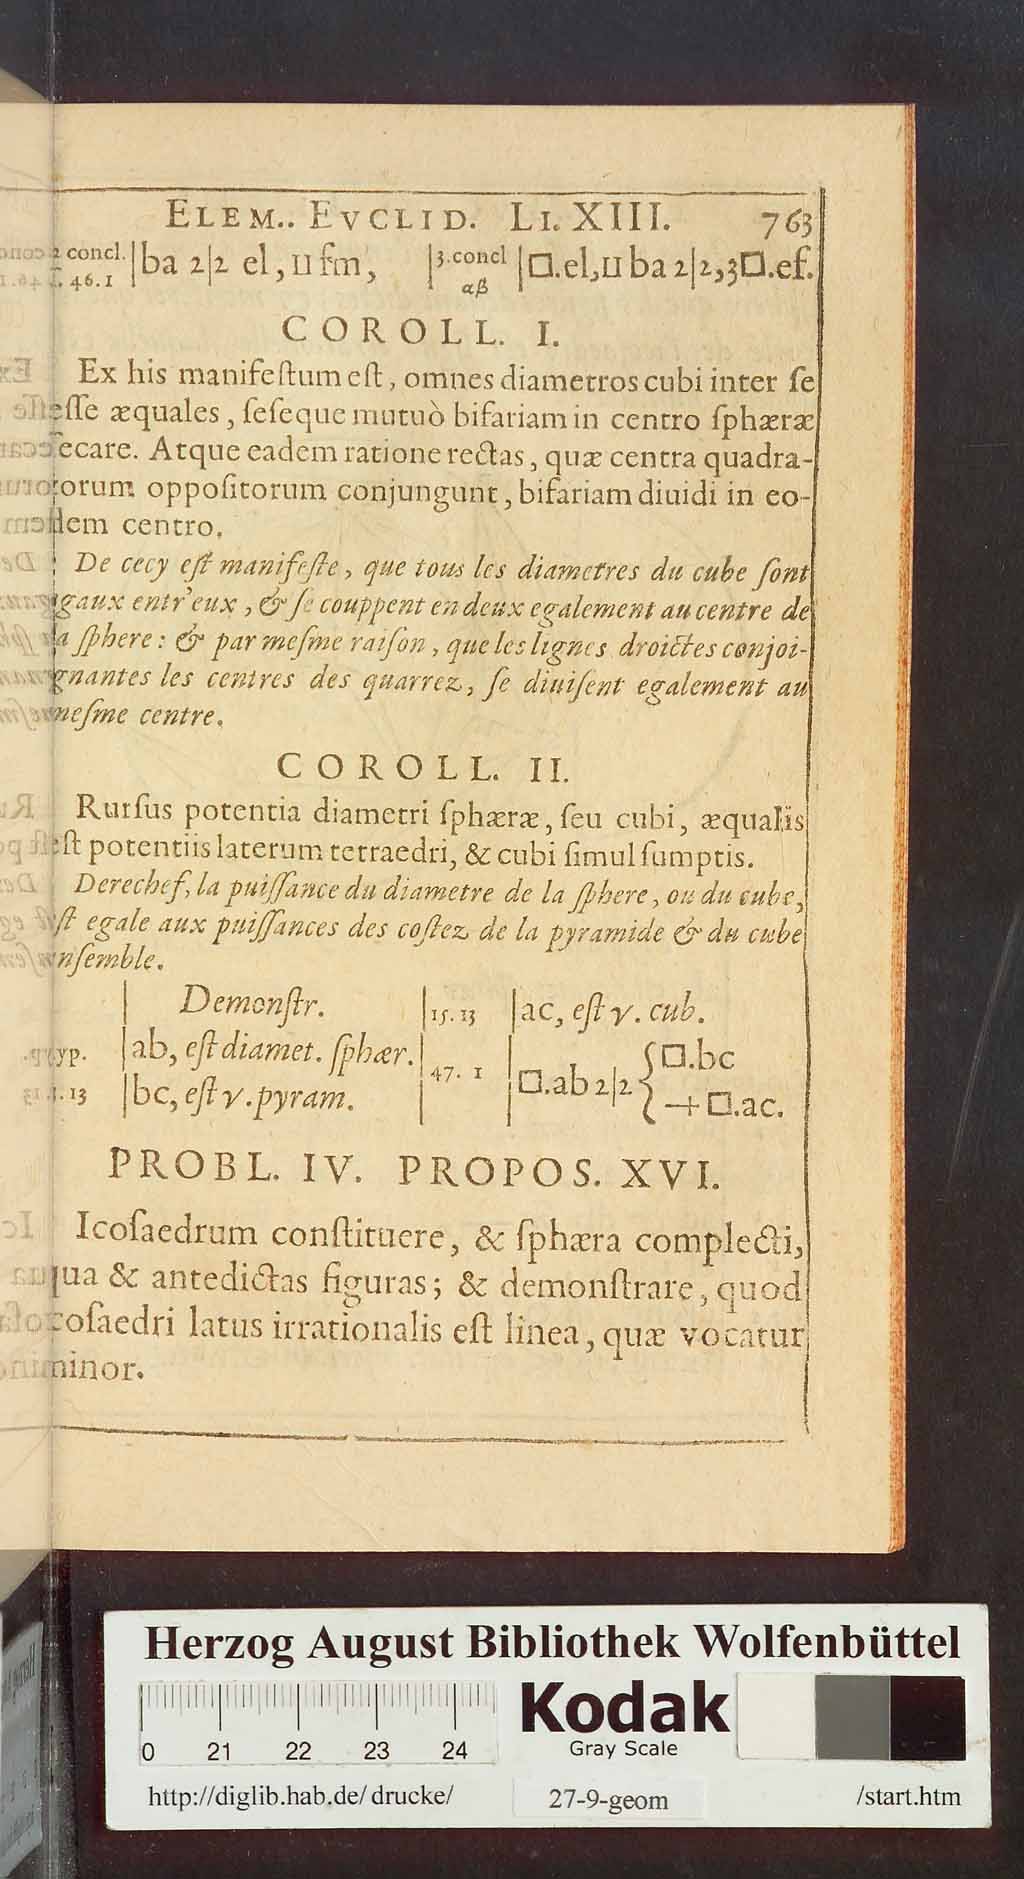 ELEM.. EVCLID. LI. XIII. 763
2 concl. | ba 2|2 el, u fm, | 3. concl | □.el, u ba 2|2, 3□.ef.
46.1 αβ
COROLL. I.
Ex his manifeſtum eſt, omnes diametros cubi inter ſe
eſſe æquales, ſeſeque mutuò bifariam in centro ſphæræ
ſecare. Atque eadem ratione rectas, quæ centra quadra-
torum oppoſitorum conjungunt, bifariam diuidi in eo-
dem centro.
De cecy eſt manifeſte, que tous les diametres du cube ſont
egaux entr'eux, & ſe couppent en deux egalement au centre de
la ſphere: & par meſme raiſon, que les lignes droictes conjoi-
gnantes les centres des quarrez, ſe diuiſent egalement au
meſme centre.
COROLL. II.
Rurſus potentia diametri ſphæræ, ſeu cubi, æqualis
eſt potentiis laterum tetraedri, & cubi ſimul ſumptis.
Derechef, la puiſſance du diametre de la ſphere, ou du cube,
eſt egale aux puiſſances des coſtez de la pyramide & du cube
enſemble.
| Demonſtr. | 15. 13 | ac, eſt γ. cub.
hyp. | ab, eſt diamet. ſphær. | 47. 1 | □.ab 2|2 { □.bc
13 | bc, eſt γ. pyram. + □.ac.
PROBL. IV. PROPOS. XVI.
Icoſaedrum conſtituere, & ſphæra complecti,
qua & antedictas figuras; & demonſtrare, quod
icoſaedri latus irrationalis eſt linea, quæ vocatur
minor.
Herzog August Bibliothek Wolfenbüttel
0 21 22 23 24
Kodak
Gray Scale
http://diglib.hab.de/ drucke/ 27-9-geom /start.htm